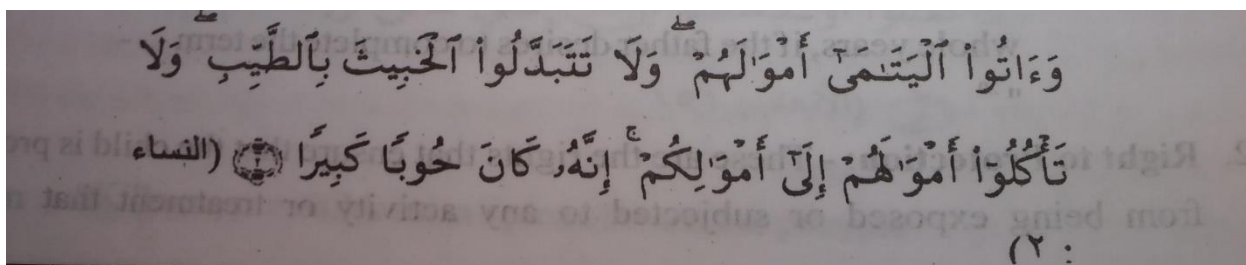 وَءَاتُوا ٱلْيَتَـٰمَىٰٓ أَمْوَٰلَهُمْ ۖ وَلَا تَتَبَدَّلُوا ٱلْخَبِيثَ بِٱلطَّيِّبِ ۖ وَلَا
تَأْكُلُوٓا أَمْوَٰلَهُمْ إِلَىٰٓ أَمْوَٰلِكُمْ ۚ إِنَّهُۥ كَانَ حُوبًا كَبِيرًا ۝٢ (النساء
: ٢)